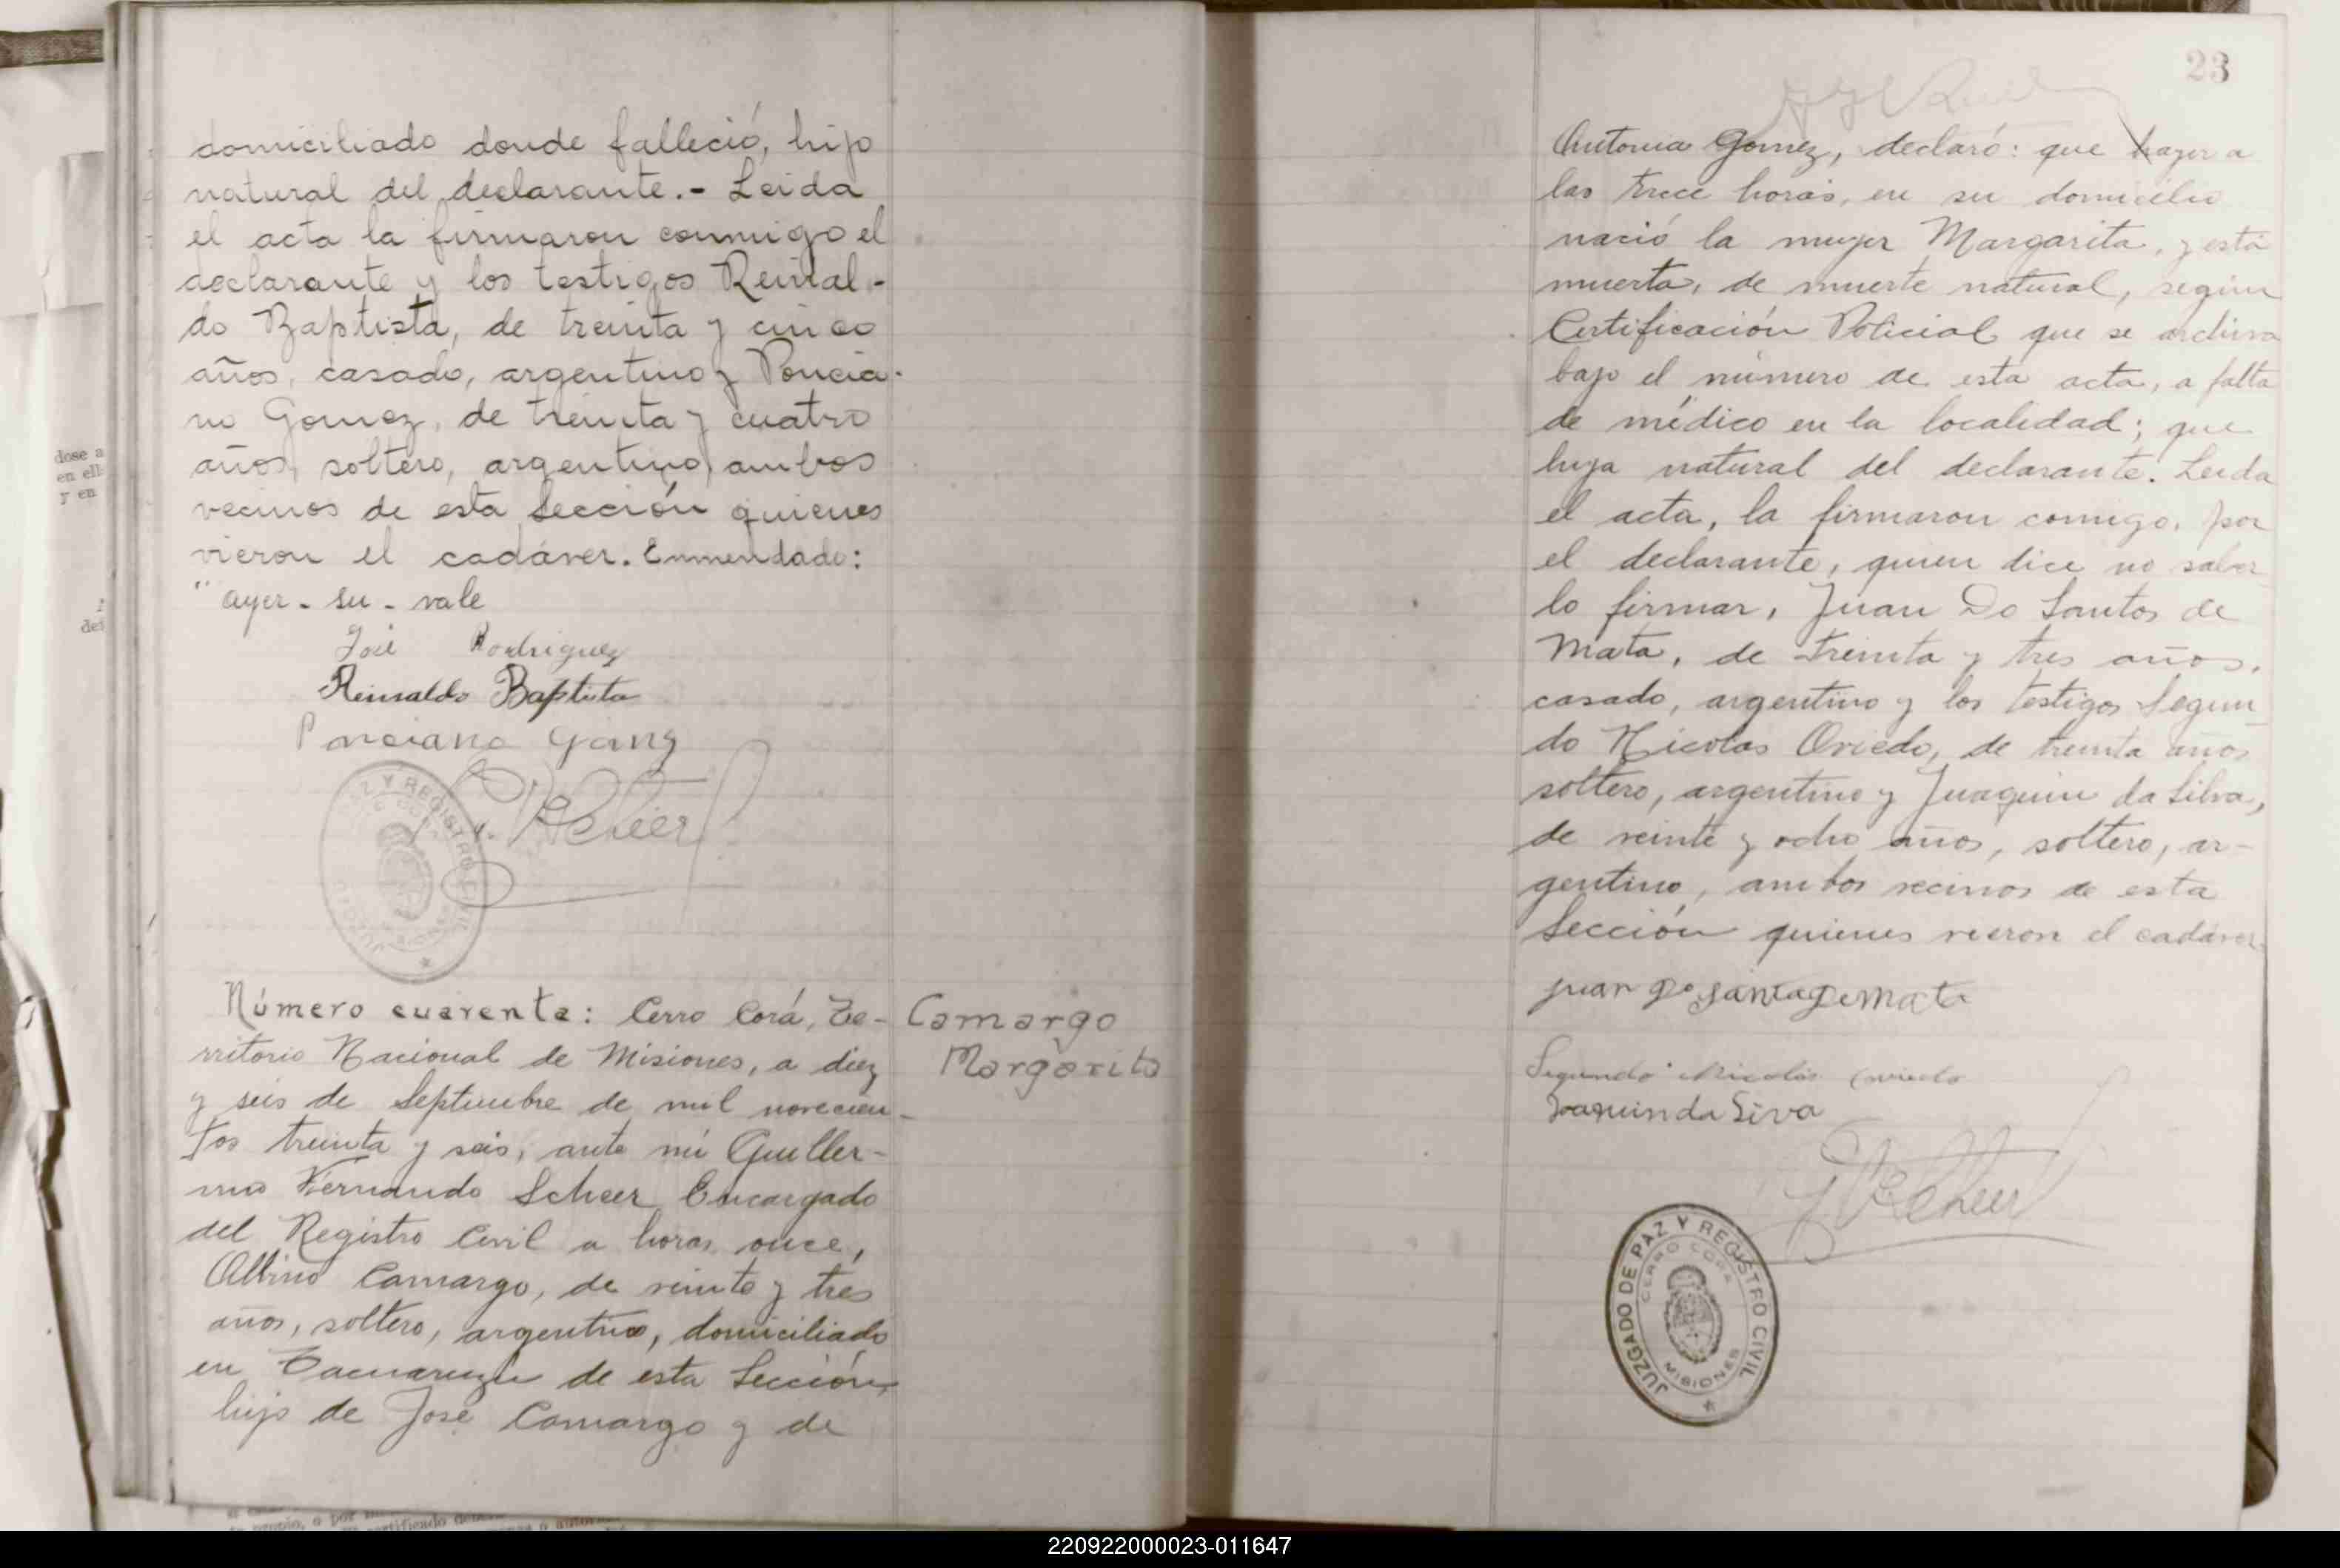 domiciliado donde falleció, hijo
natural del declarante.- Leida
el acta la firmaron conmigo el
declarante y los testigos Reinal-
do Baptista, de treinta y cinco
años, casado, argentino y Poncia-
no Gomez, de treinta y cuatro
años, soltero, argentino, ambos
vecinos de esta Sección quienes
vieron el cadáver. Enmendado:
"ayer - su - vale
José Rodriguez
Reinaldo Baptista
Ponciano
Scheer
Número cuarenta: Cerro Corá, Te-
rritorio Nacional de Misiones, a diez
y seis de Septiembre de mil novecien-
tos treinta y seis, ante mi Guiller-
mo Fernando Scheer Encargado
del Registro Civil a horas once,
Albino Camargo, de veinte y tres
años, soltero, argentino, domiciliado
en de esta Sección,
hijo de José Camargo y de
Camargo
Margarita
23
Antonia Gomez, declaró: que hayer a
las trece horas, en su domicilio
nació la mujer Margarita, y está
muerta, de muerte natural, según
Certificación Policial que se archiva
bajo el número de esta acta, a falta
de médico en la localidad; que
hija natural del declarante. Leida
el acta, la firmaron comigo, por
el declarante, quien dice no saber
lo firmar, Juan Do Santos de
Mata, de treinta y tres años,
casado, argentino y los testigos Segun
do Nicolas Oviedo, de treinta años
soltero, argentino y Juaquin da Silva,
de veinte y ocho años, soltero, ar-
gentino, ambos vecinos de esta
Sección quienes vieron el cadáver
juan Do Santos De Mata
Segundo Nicolás Oviedo
Joaquin da Siva
Scheer
JUZGADO DE PAZ Y REGISTRO CIVIL
CERRO CORA
MISIONES
220922000023-011647